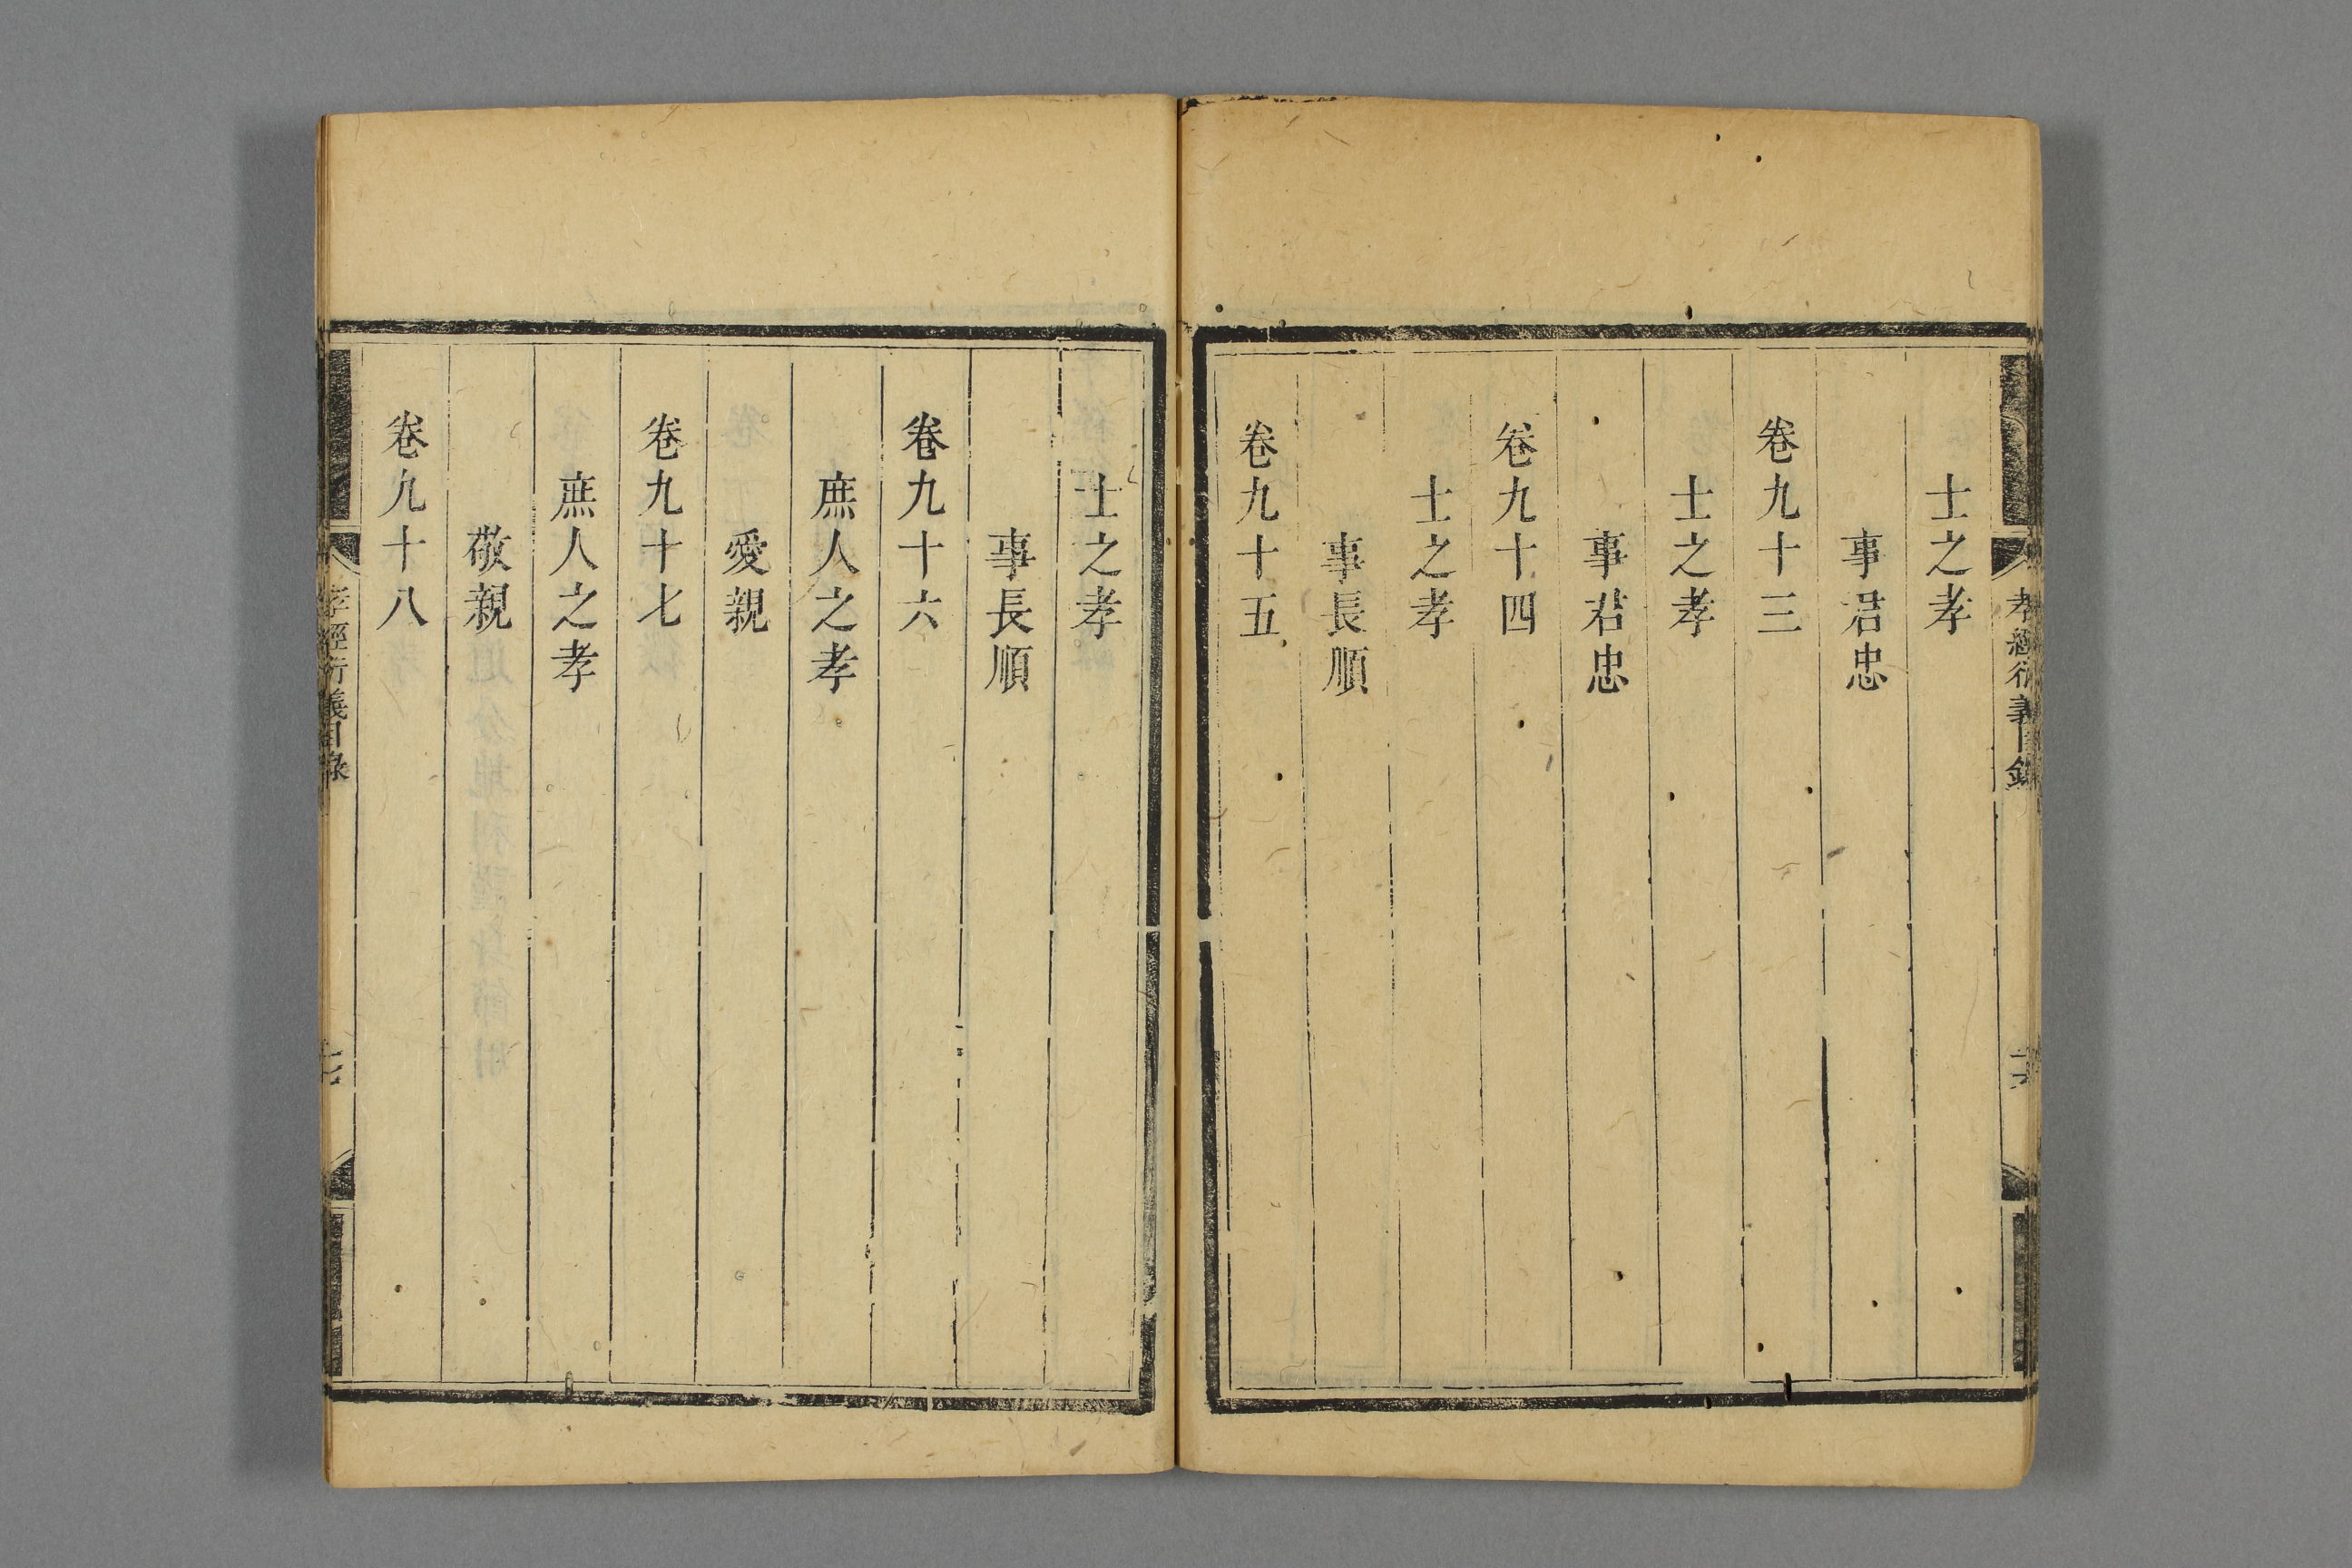 孝經衍義目錄
士之孝
事君忠
卷九十三
士之孝
事君忠
卷九十四
士之孝
事長順
卷九十五
士之孝
事長順
卷九十六
庶人之孝
愛親
卷九十七
庶人之孝
敬親
卷九十八
孝經衍義目錄